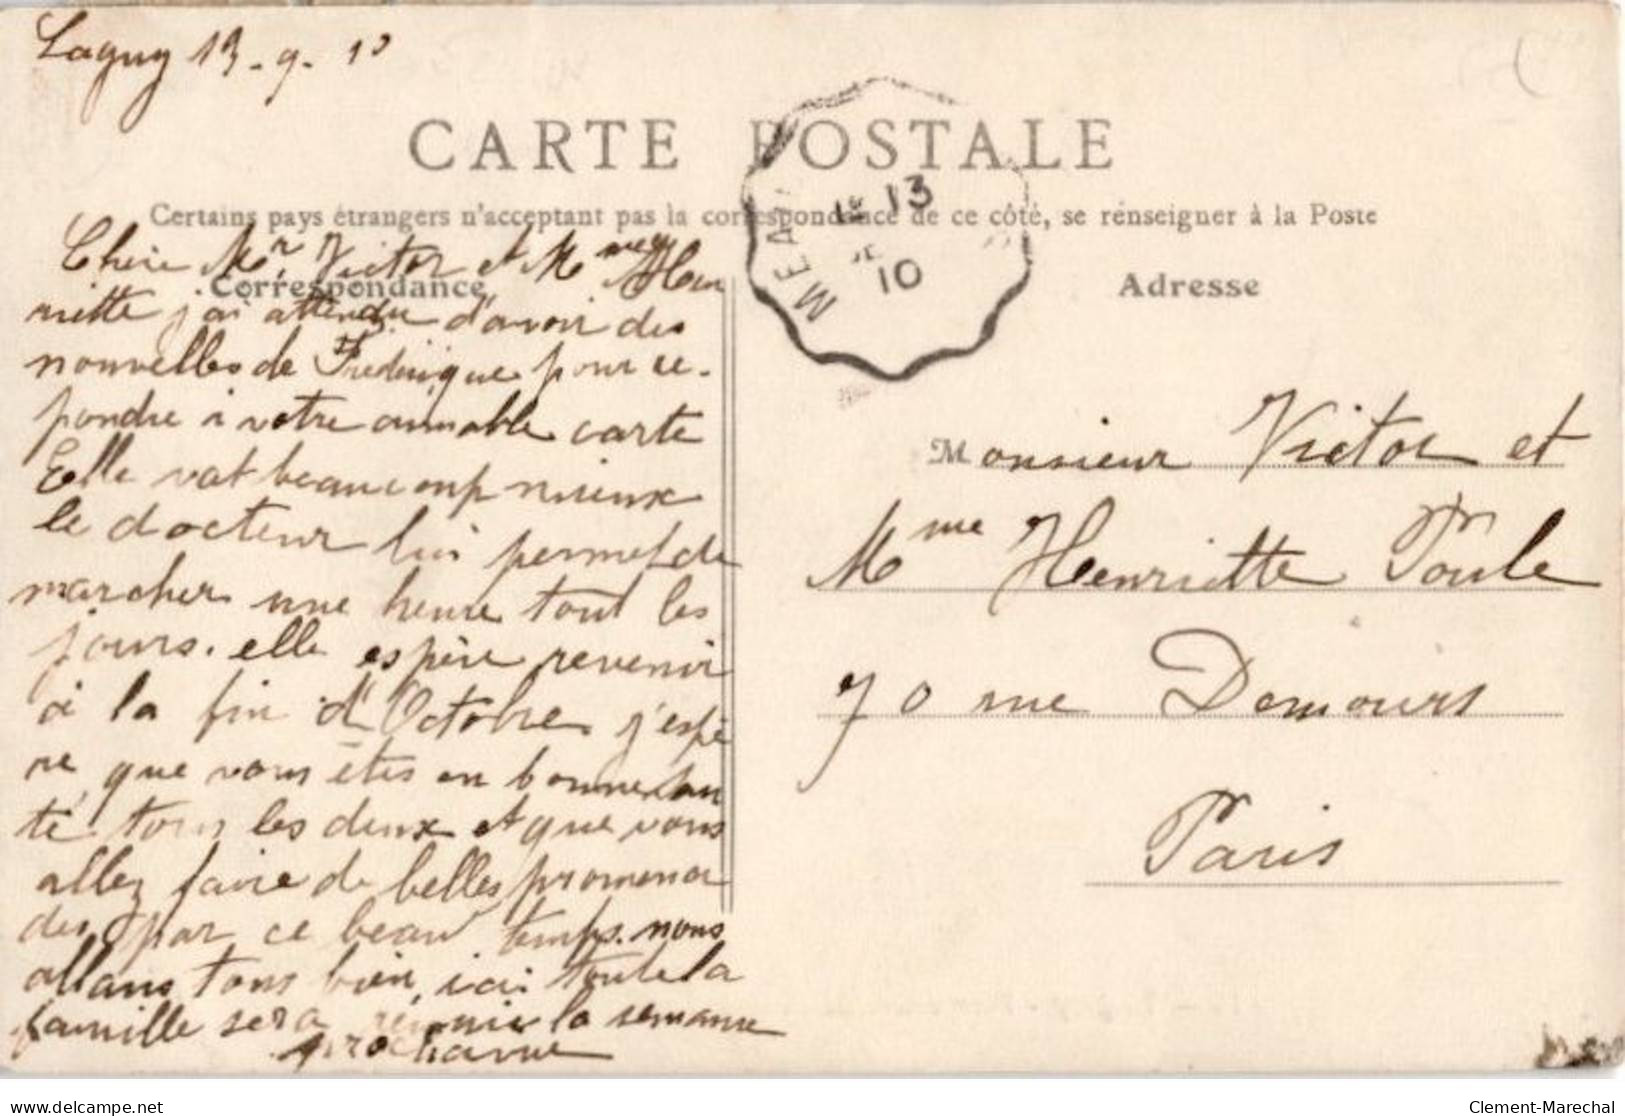 Lagny 13-9-10
CARTE POSTALE
Certains pays étrangers n'acceptant pas la correspondance de ce côté, se renseigner à la Poste
Correspondance
Adresse
MEA
13
10
Chère Mr, Victor et Mme Hen
riette j'ai attendu d'avoir des
nouvelles de Frederique pour re-
pondre à votre aimable carte
Elle vat beaucoup mieux
le docteur lui permet de
marcher une heure tout les
jours. elle espère revenir
à la fin d'Octobre, j'espè
re, que vous êtes en bonne san
té tous les deux et que vous
allez faire de belles promena
des par ce beau temps. nous
allans tous bien, ici toute la
famille sera réunie la semaine
prochaine
Monsieur Victor et
Mme Henriette Poule
70 rue Demours
Paris
delcampe.net
Clement-Marechal